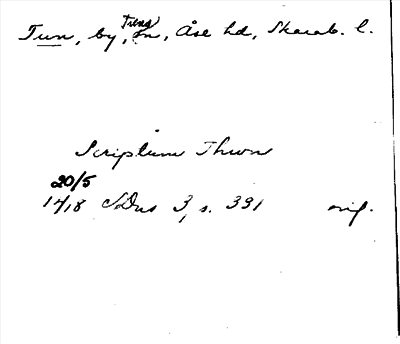 Tun, by, Tuns sn, Åse hd, Skarab. l.
Scriptum Thwn
20/5
1418 SDns 3, s. 331 orig.